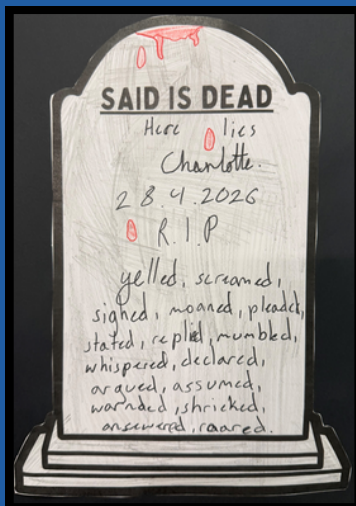 SAID IS DEAD
Here lies
Charlotte.
28.4.2026
R.I.P
yelled, screamed,
sighed, moaned, pleaded,
stated, replid, mumbled,
whispered, declared,
argued, assumed,
warnded, shricked,
answered, roared.